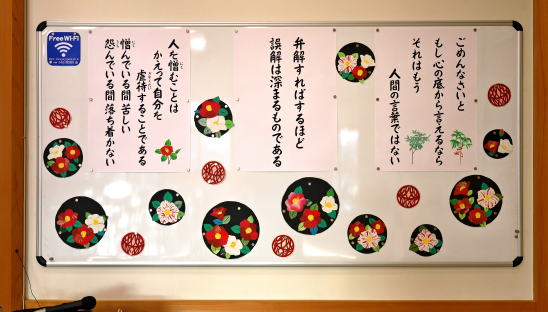 ごめんなさいと
もし心の底から言えるなら
それはもう
人間の言葉ではない
弁解すればするほど
誤解は深まるものである
人を憎むことは
かえって自分を
虐待することである
憎んでいる間苦しい
怨んでいる間落ち着かない
Free Wi-Fi